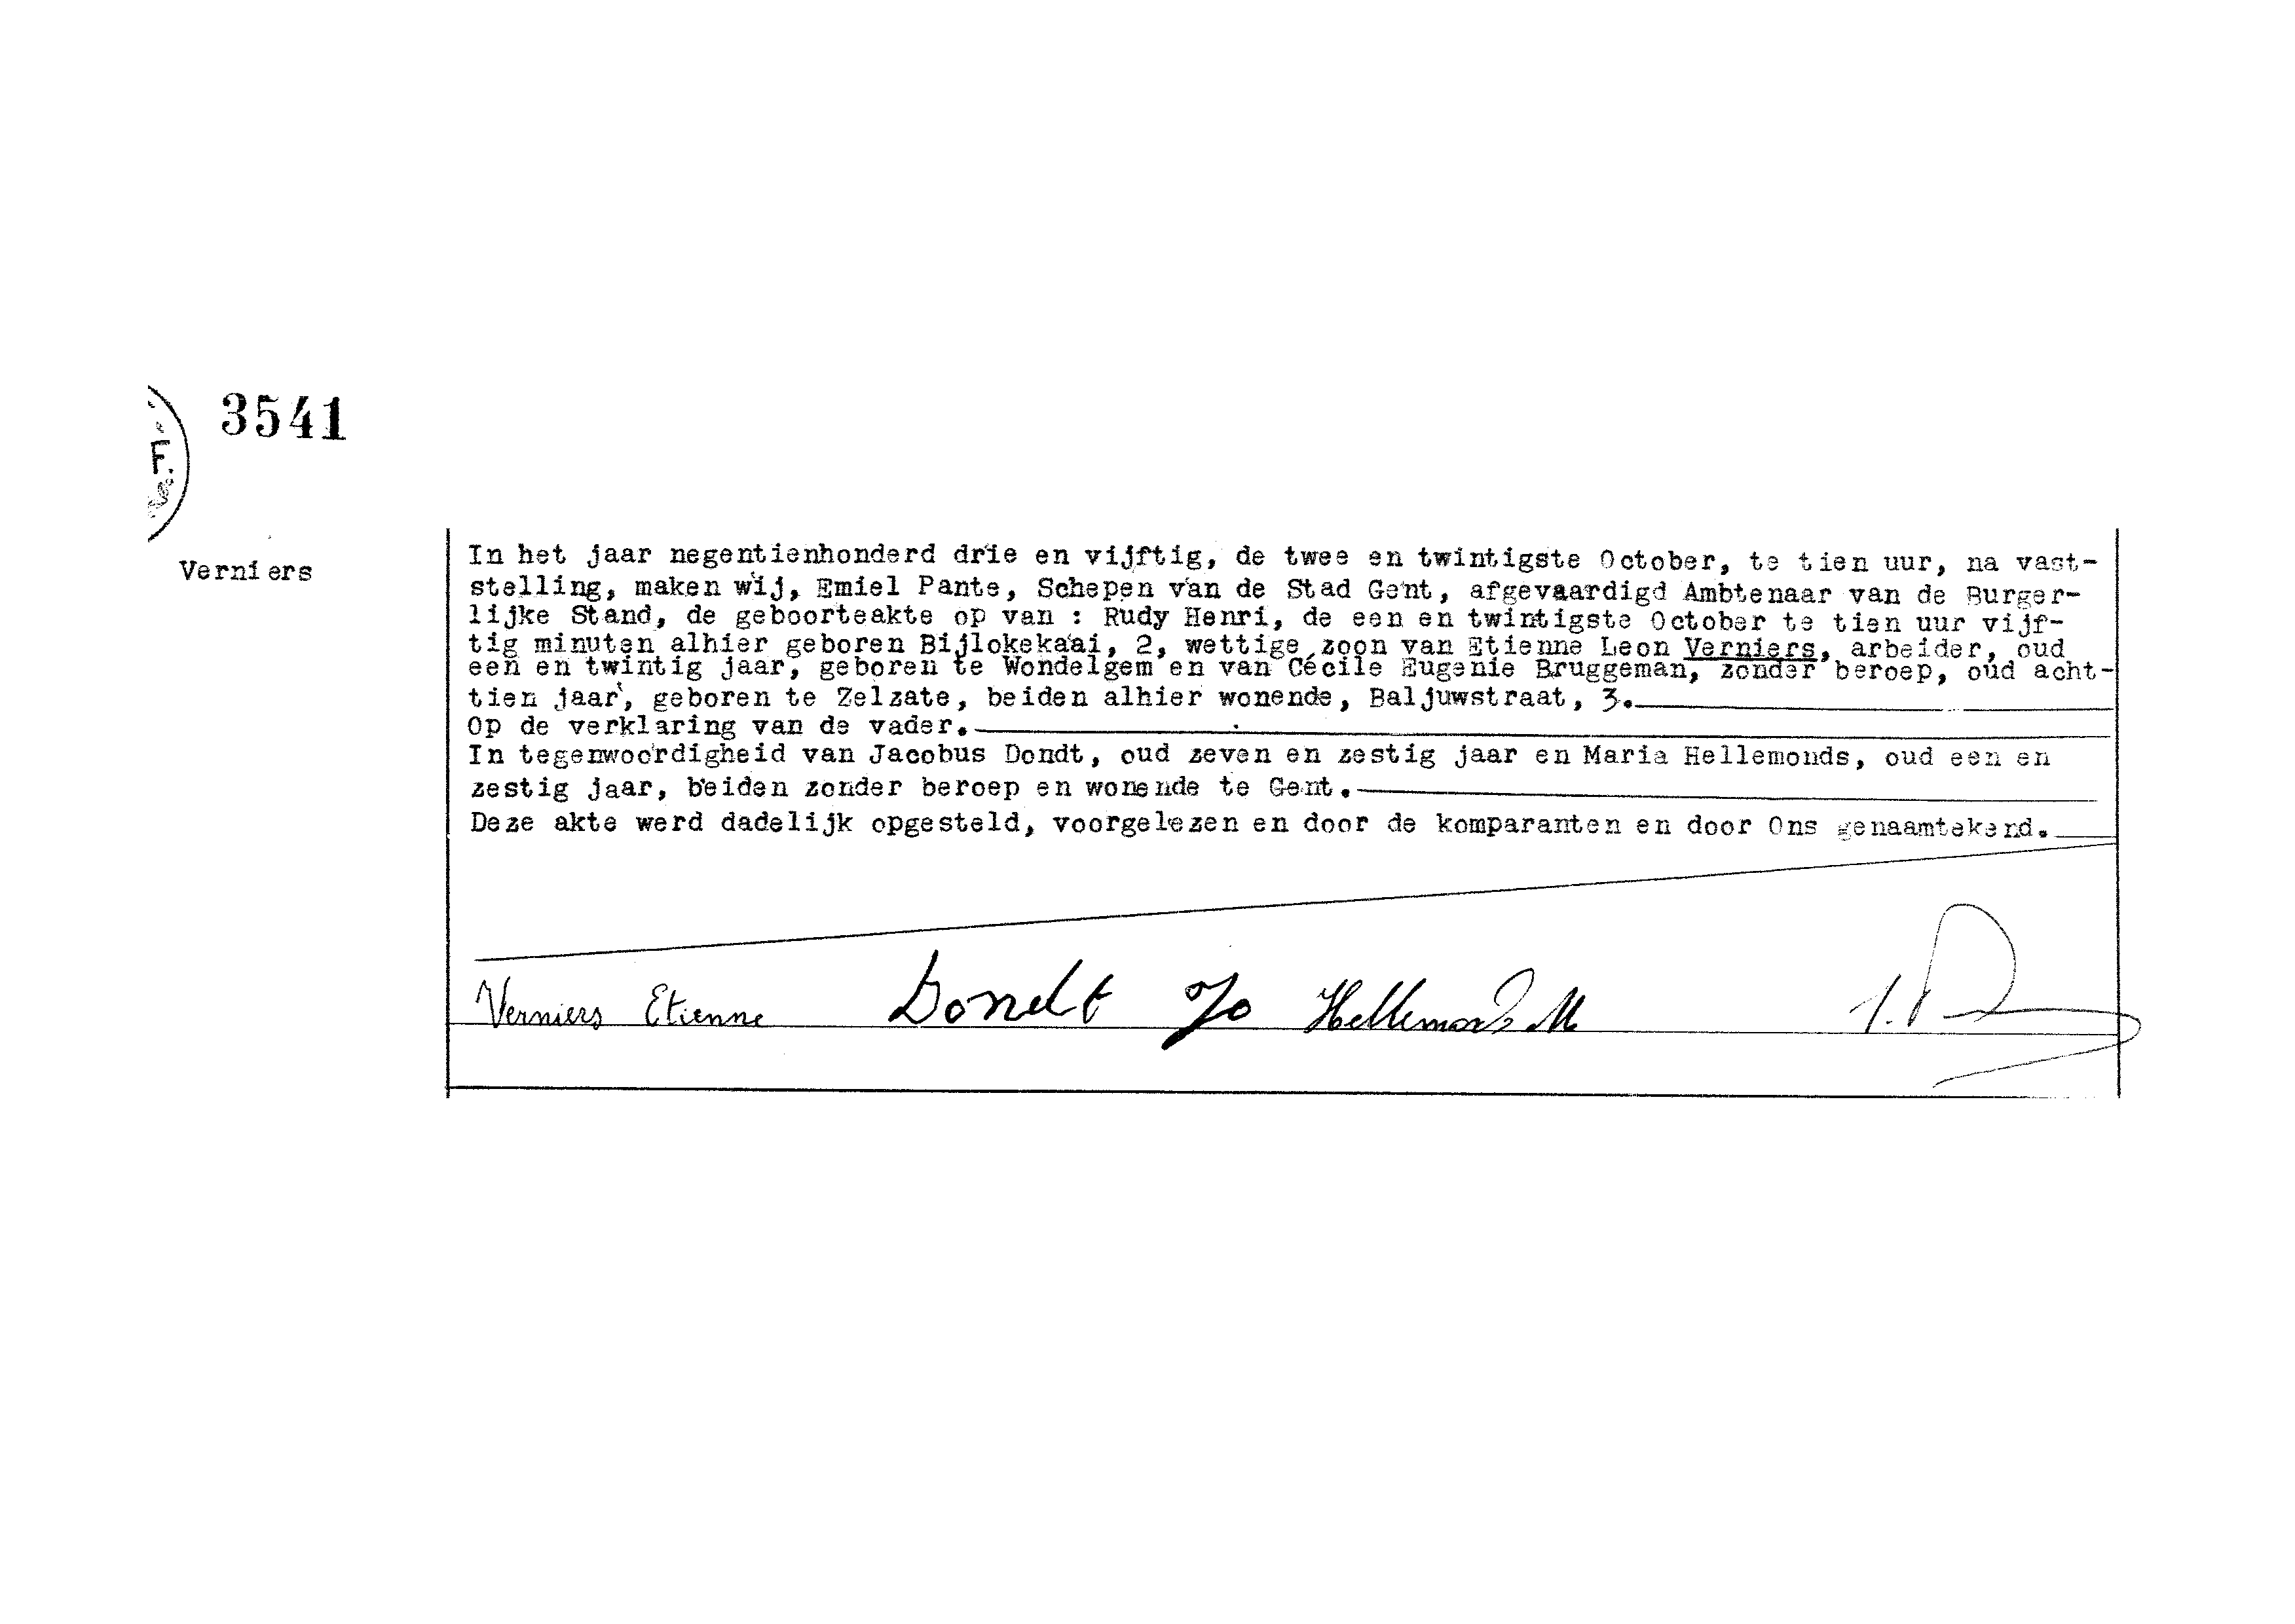 3541
Verniers
In het jaar negentienhonderd drie en vijftig, de twee en twintigste October, te tien uur, na vast-
stelling, maken wij, Emiel Pante, Schepen van de Stad Gent, afgevaardigd Ambtenaar van de Burger-
lijke Stand, de geboorteakte op van : Rudy Henri, de een en twintigste October te tien uur vijf-
tig minuten alhier geboren Bijlokekaai, 2, wettige zoon van Etienne Leon Verniers, arbeider, oud
een en twintig jaar, geboren te Wondelgem en van Cécile Eugenie Bruggeman, zonder beroep, oud acht-
tien jaar, geboren te Zelzate, beiden alhier wonende, Baljuwstraat, 3.
Op de verklaring van de vader.
In tegenwoordigheid van Jacobus Dondt, oud zeven en zestig jaar en Maria Hellemonds, oud een en
zestig jaar, beiden zonder beroep en wonende te Gent.
Deze akte werd dadelijk opgesteld, voorgelezen en door de komparanten en door Ons genaamtekend.
Verniers Etienne Dondt Jo Hellemonds M